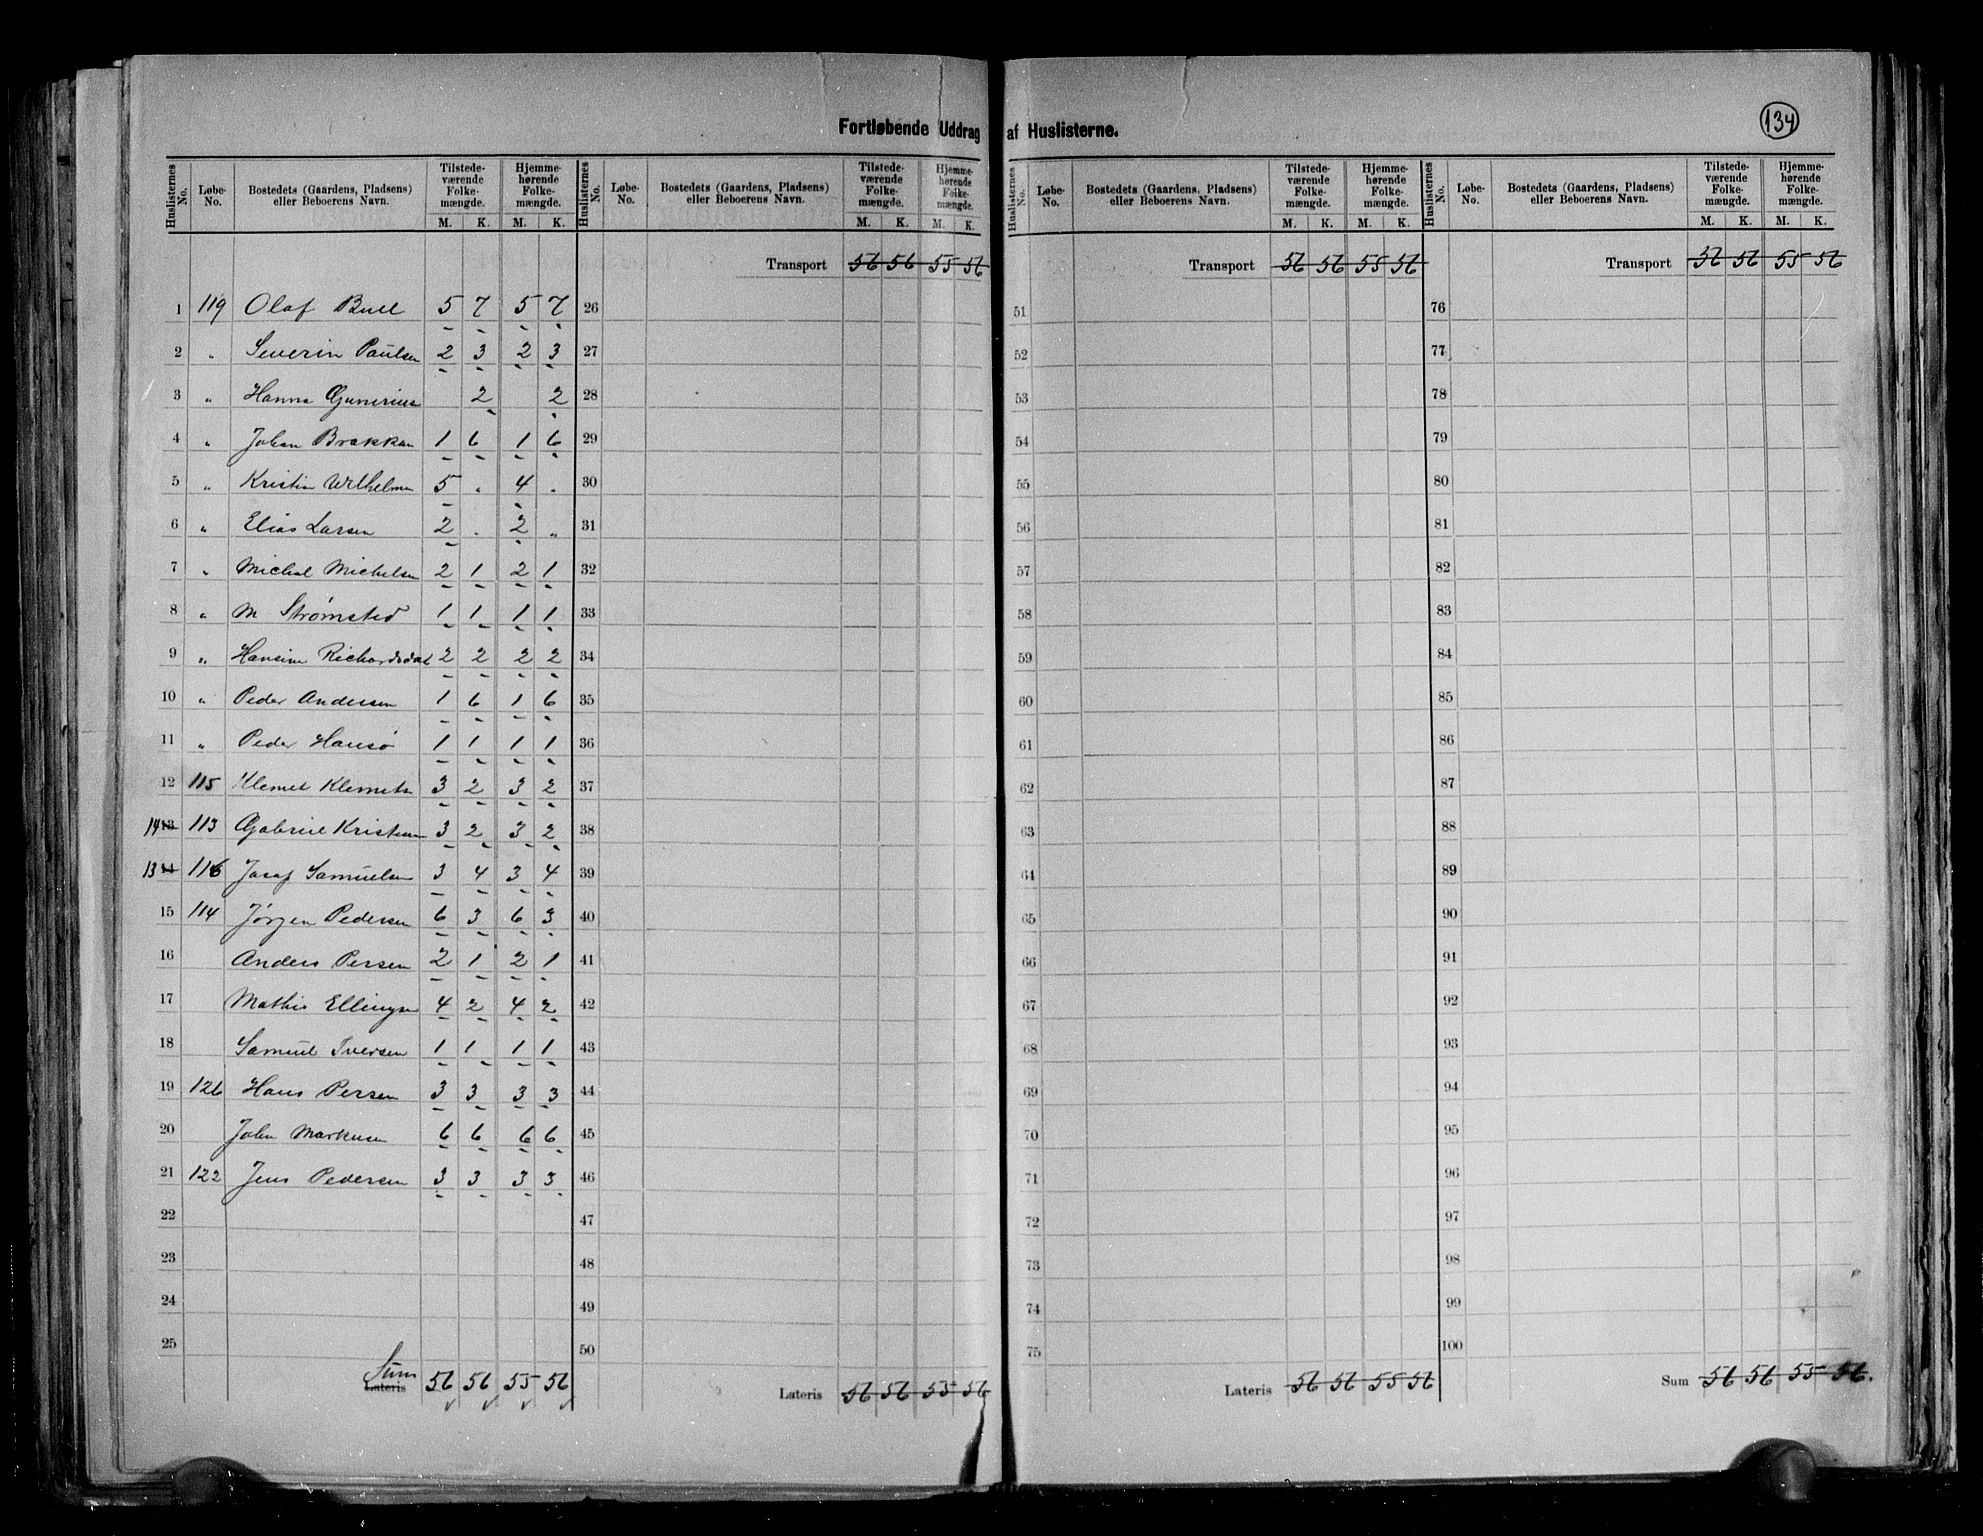 Fortløbende Uddrag af Huslisterne.
134
Huslisternes No. Løbe-No. Bostedets (Gaardens, Pladsens) eller Beboerens Navn. Tilstedeværende Folkemængde. M. K. Hjemmehørende Folkemængde. M. K.
Huslisternes No. Løbe-No. Bostedets (Gaardens, Pladsens) eller Beboerens Navn. Tilstedeværende Folkemængde. M. K. Hjemmehørende Folkemængde. M. K.
Huslisternes No. Løbe-No. Bostedets (Gaardens, Pladsens) eller Beboerens Navn. Tilstedeværende Folkemængde. M. K. Hjemmehørende Folkemængde. M. K.
Huslisternes No. Løbe-No. Bostedets (Gaardens, Pladsens) eller Beboerens Navn. Tilstedeværende Folkemængde. M. K. Hjemmehørende Folkemængde. M. K.
1 119 Olaf Bull 5 7 5 7
2 " Severin Paulsen 2 3 2 3
3 " Hanna 2 2
4 " Johan Brækkan 1 6 1 6
5 " Kristian Wilhelmsen 5 " 4 "
6 " Elias Larsen 2 " 2 "
7 " Michal Michelsen 2 1 2 1
8 " M Strømsted 1 1 1 1
9 " Hansine Richardsdat 2 2 2 2
10 " Peder Andersen 1 6 1 6
11 " Peder Hansø 1 1 1 1
12 115 Klemet Klemets 3 2 3 2
14 13 113 Gabriel Kristensen 3 2 3 2
13 14 116 Josaf Samuelsen 3 4 3 4
15 114 Jørgen Pedersen 6 3 6 3
16 Anders Persen 2 1 2 1
17 Mathis Ellingsen 4 2 4 2
18 Samuel Iversen 1 1 1 1
19 126 Hans Persen 3 3 3 3
20 John Markusen 6 6 6 6
21 122 Jens Pedersen 3 3 3 3
22
23
24
25
Sum
Lateris 56 56 55 56
Transport 56 56 55 56
26
27
28
29
30
31
32
33
34
35
36
37
38
39
40
41
42
43
44
45
46
47
48
49
50
Lateris 56 56 55 56
Transport 56 56 55 56
51
52
53
54
55
56
57
58
59
60
61
62
63
64
65
66
67
68
69
70
71
72
73
74
75
Lateris 56 56 55 56
Transport 56 56 55 56
76
77
78
79
80
81
82
83
84
85
86
87
88
89
90
91
92
93
94
95
96
97
98
99
100
Sum 56 56 55 56.